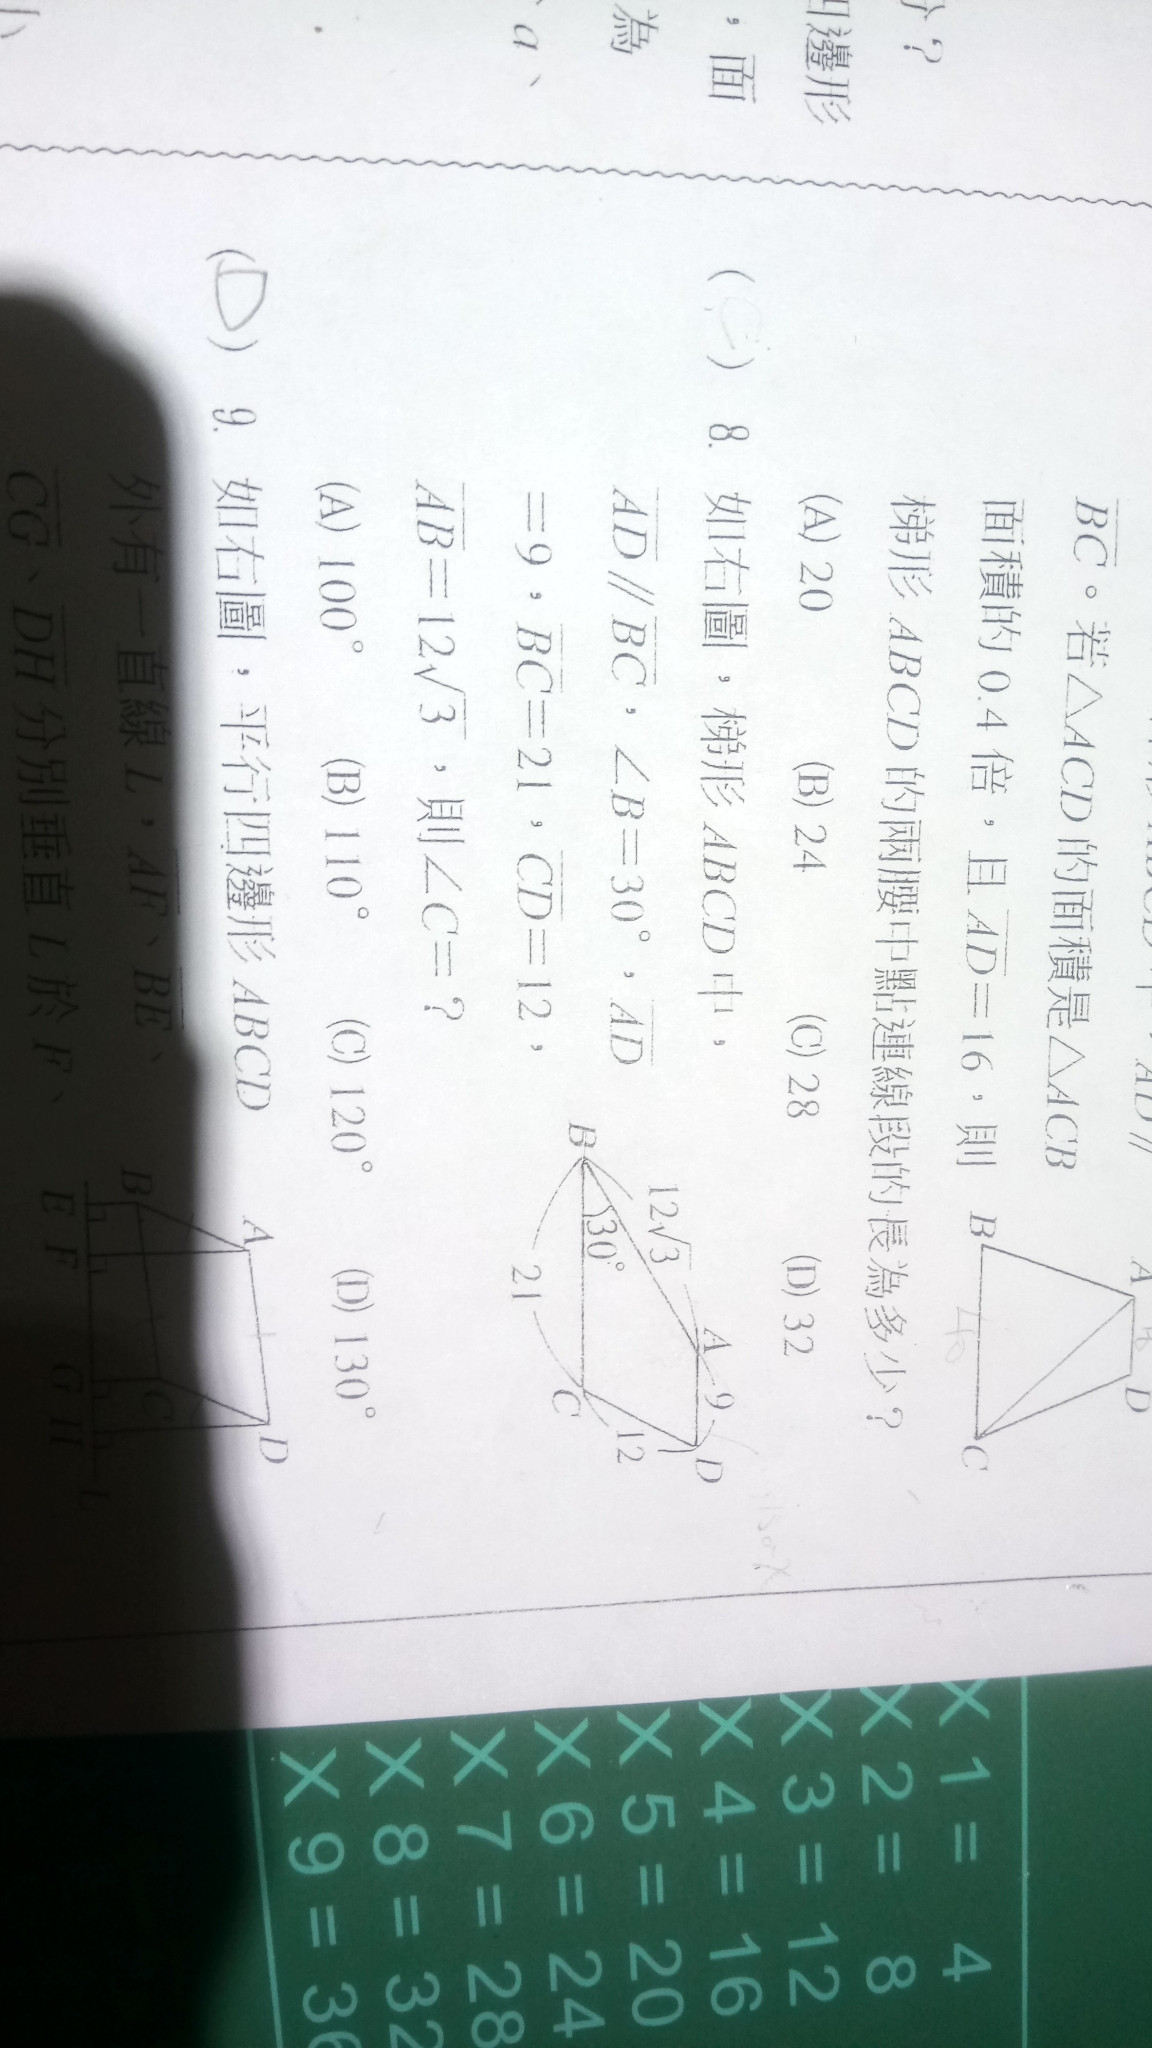 分？
四邊形
，面
為
、a、
BC。若△ACD 的面積是△ACB
面積的 0.4 倍，且 AD＝16，則
梯形 ABCD 的兩腰中點連線段的長為多少？
(A) 20 (B) 24 (C) 28 (D) 32
A
D
B
C
( C ) 8. 如右圖，梯形 ABCD 中，
AD // BC，∠B＝30°，AD
＝9，BC＝21，CD＝12，
AB＝12√3，則∠C＝？
12√3
A
9
D
B
30°
C
12
21
(A) 100° (B) 110° (C) 120° (D) 130°
(D) 9. 如右圖，平行四邊形 ABCD
外有一直線 L，AF、BE、
CG、DH 分別垂直 L 於 F、
A
D
B
C
E F G H L
X 1 = 4
X 2 = 8
X 3 = 12
X 4 = 16
X 5 = 20
X 6 = 24
X 7 = 28
X 8 = 32
X 9 = 36